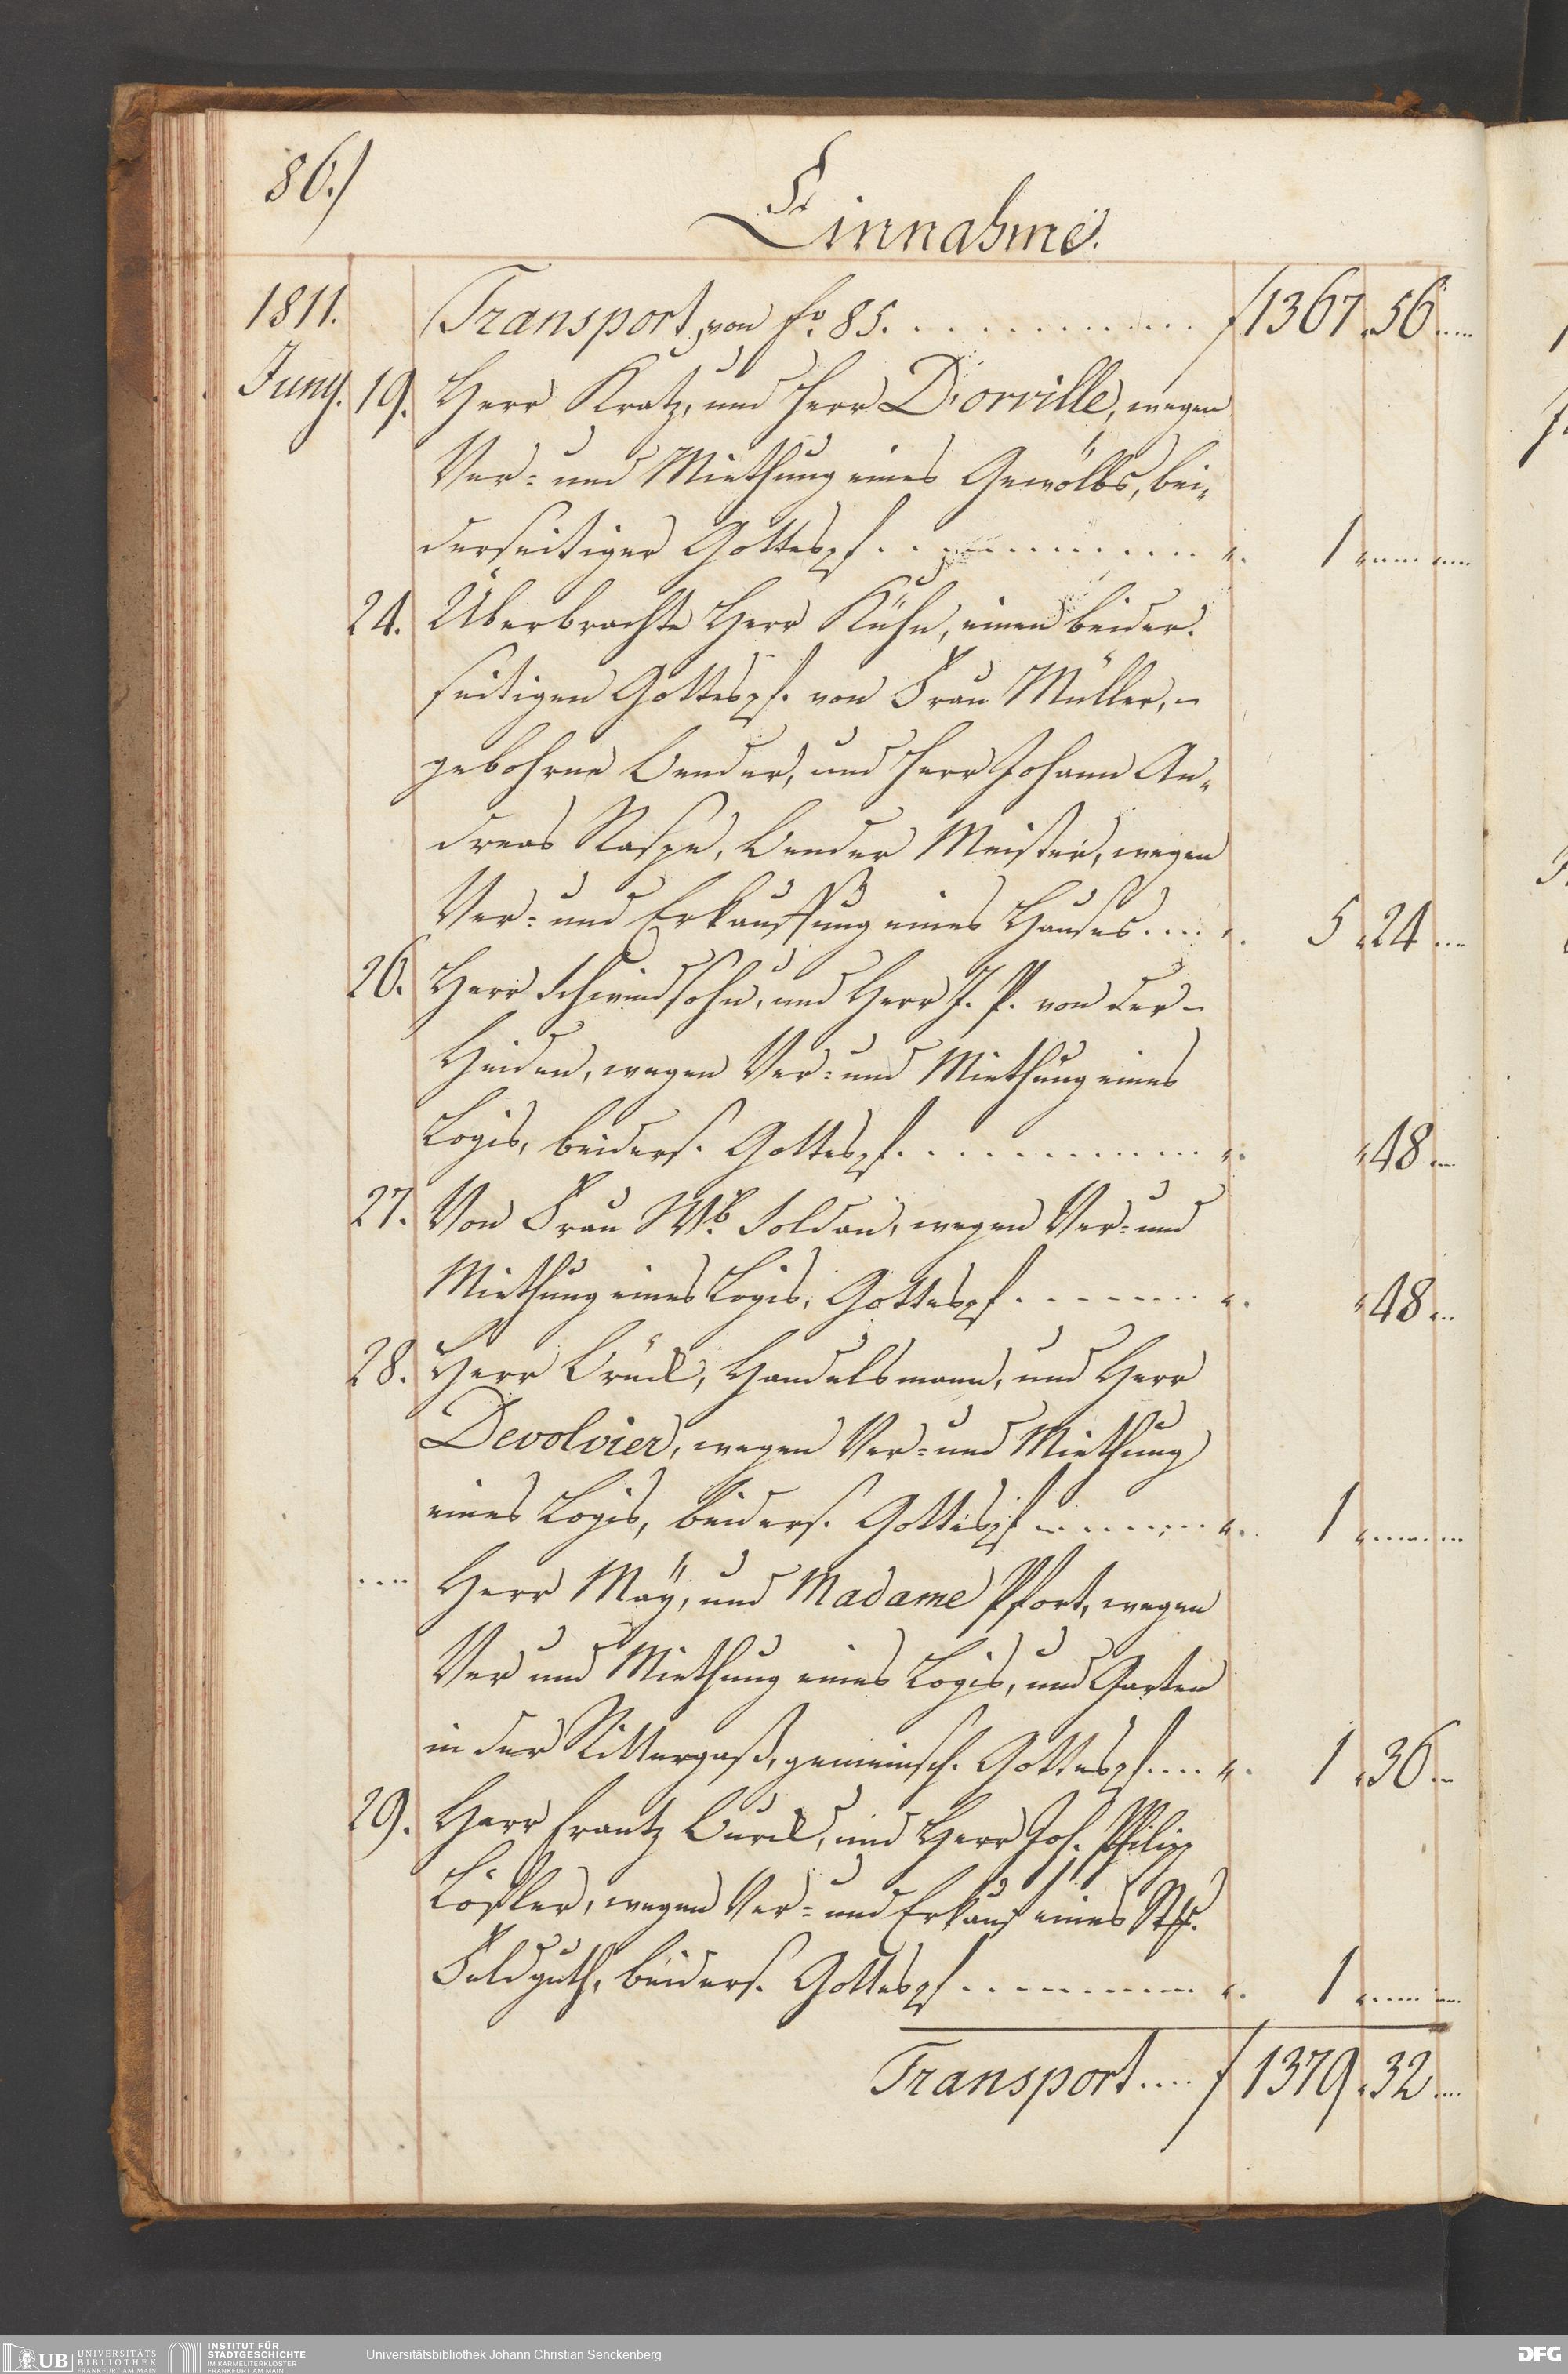 86.)
Einnahme.
1811. Transport, von fo. 85. . . . . . . . . . . . . f 1367 „ 56 ....
Juny. 19. Herr Kratz, und Herr D'orville, wegen
Ver= und Miethung eines Gewölbs, bei„
derseitiger Gottespf. . . . . . . . . . . . . „ 1 „ .... ....
24. Überbrachte Herr Kühn, einen beider„
seitigen Gottespf. von Frau Müller, -
gebohrne Bender, und Herr Johann An„
dreas Raspe, Bender Meister, wegen
Ver= und Erkauffung eines Hauses .... „ 5 „ 24 ...
26. Herr Schwindsohn, und Herr J. P. von der -
Heiden, wegen Ver= und Miethung eines
Logis, beiders. Gottespf. . . . . . . . . . . . „ „ 48 ...
27. Von Frau Wb. Soldan, wegen Ver= und
Miethung eines Logis, Gottespf. . . . . . . . „ „ 48 ...
28. Herr Brück, Handelsmann, und Herr
Devolvier, wegen Ver= und Miethung
eines Logis, beiders. Gottespf. . . . . . . . „ 1 „ .... ...
.... Herr Maÿ, und Madame Pfort, wegen
Ver und Miethung eines Logis, und Garten
in der Rittergaß, gemeinsch. Gottespf. . . . „ 1 „ 36 ...
29. Herr Frantz Burck, und Herr Joh. Philipp
Lößler, wegen Ver= und Erkauf eines
Feldguth, beiders. Gottespf. . . . . . . . . . „ 1 „ .... ...
Transport .... f 1379 „ 32 ....
UB UNIVERSITÄTS
BIBLIOTHEK
FRANKFURT AM MAIN
INSTITUT FÜR
STADTGESCHICHTE
IM KARMELITERKLOSTER
FRANKFURT AM MAIN
Universitätsbibliothek Johann Christian Senckenberg
DFG